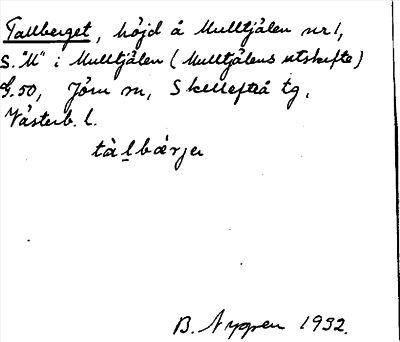 Tallberget, höjd å Mulltjälen nr 1,
S. "M" i Mulltjälen (Mulltjälens utskifte)
50, Jörn sn, Skellefteå tg,
Västerb. l.
tàlbǽrjer
B. Nygren 1932.